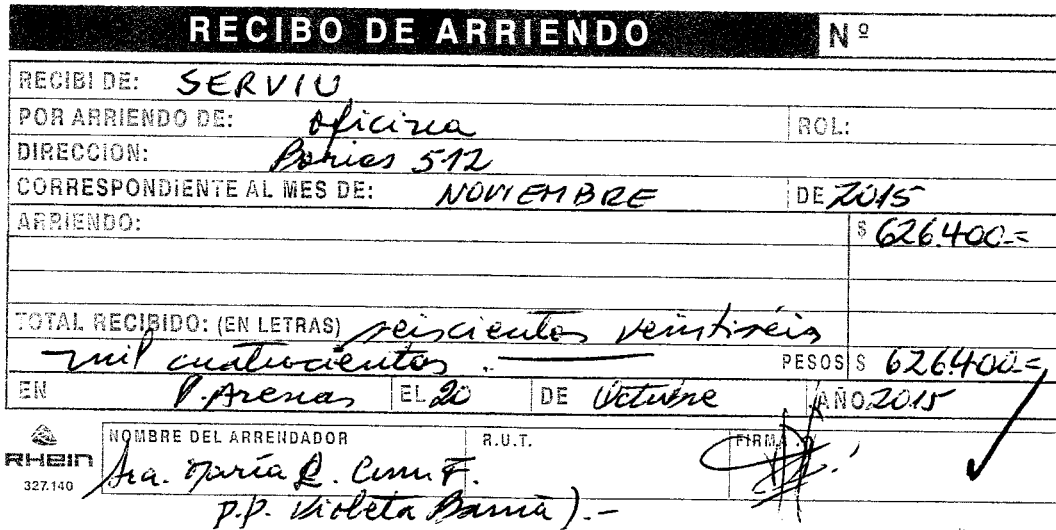 RECIBO DE ARRIENDO Nº
RECIBI DE: SERVIU
POR ARRIENDO DE: oficina ROL:
DIRECCION: Bories 512
CORRESPONDIENTE AL MES DE: NOVIEMBRE DE 2015
ARRIENDO: $ 626.400.=
TOTAL RECIBIDO: (EN LETRAS) seiscientos veintiséis
mil cuatrocientos. PESOS $ 626.400.=
EN P. Arenas EL 20 DE Octubre AÑO 2015
NOMBRE DEL ARRENDADOR R.U.T. FIRMA
RHEIN
327.140
Sra. María F.
p.p. Violeta ).-